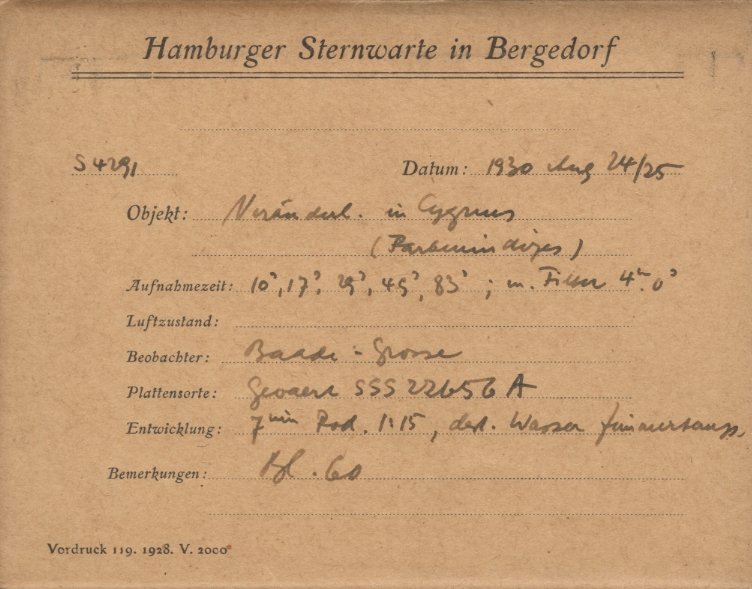 Hamburger Sternwarte in Bergedorf
S 4291 Datum: 1930 Aug 24/25
Objekt: Veränderl. in Cygnus
(Farbenindizes)
Aufnahmezeit: 10ˢ, 17ˢ, 29ˢ, 49ˢ, 83ˢ ; m. Filter 4ᵐ.0ˢ
Luftzustand:
Beobachter: Baade - Grosse
Plattensorte: Gevaert SSS 22656 A
Entwicklung: 7 min Rod. 1:15, dest. Wasser
Bemerkungen: Bl. 60
Vordruck 119. 1928. V. 2000